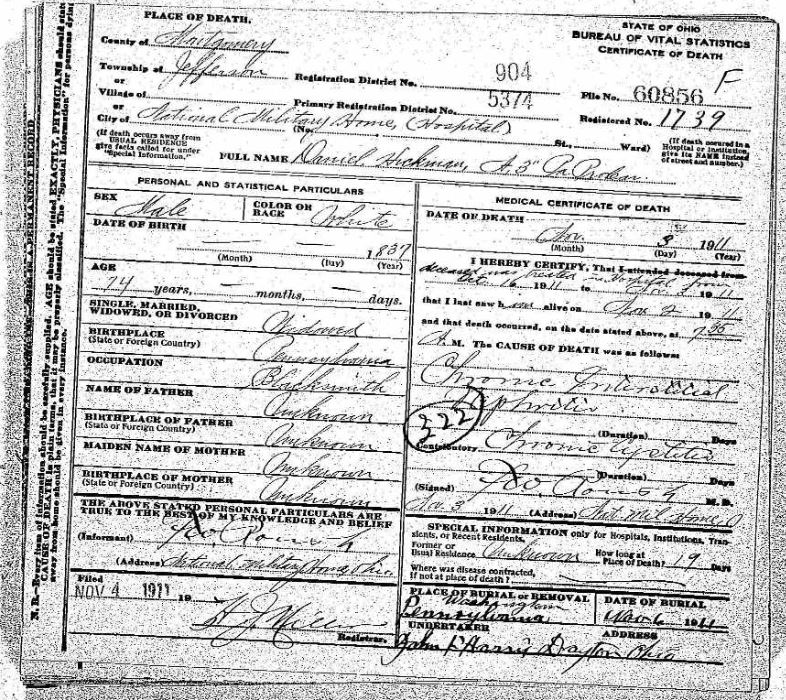 PLACE OF DEATH.
County of Montgomery
Township of Jefferson
or
Village of
or
City of National Military Home, (Hospital)
(If death occurs away from USUAL RESIDENCE give facts called for under "Special Information.")
Registration District No. 904
Primary Registration District No. 5374
(No. St., Ward)
STATE OF OHIO
BUREAU OF VITAL STATISTICS
CERTIFICATE OF DEATH
F
File No. 60856
Registered No. 1739
(If death occured in a Hospital or Institution, give its NAME instead of street and number.)
FULL NAME Daniel Hickman, A, 3"
PERSONAL AND STATISTICAL PARTICULARS
SEX Male
COLOR OR RACE White
DATE OF BIRTH
1837
(Month) (Day) (Year)
AGE
74 years, — months, — days.
SINGLE, MARRIED, WIDOWED, OR DIVORCED Widowed
BIRTHPLACE (State or Foreign Country) Pennsylvania
OCCUPATION Blacksmith
NAME OF FATHER Unknown
BIRTHPLACE OF FATHER (State or Foreign Country) Unknown
MAIDEN NAME OF MOTHER Unknown
BIRTHPLACE OF MOTHER (State or Foreign Country) Unknown
THE ABOVE STATED PERSONAL PARTICULARS ARE
TRUE TO THE BEST OF MY KNOWLEDGE AND BELIEF
(Informant)
(Address) National Military Home Ohio.
Filed
NOV 4 1911 19
Registrar.
MEDICAL CERTIFICATE OF DEATH
DATE OF DEATH
Nov. 3 1911
(Month) (Day) (Year)
I HEREBY CERTIFY, That I attended deceased from
deceased was treated in Hospital from
Oct. 16 1911 to Nov. 1911
that I last saw him alive on Nov 2 1911
and that death occurred, on the date stated above, at
A.M. The CAUSE OF DEATH was as follows:
Chronic Interstitial
Nephritis
322
(Duration) Days
Contributory Chronic Cystitis
(Duration) Days
(Signed) M. D.
Nov. 3 1911 (Address) Nat. Mil. Home, O
SPECIAL INFORMATION only for Hospitals, Institutions, Transients, or Recent Residents.
Former or Usual Residence Unknown
How long at Place of Death? 19 Days
Where was disease contracted, if not at place of death?
PLACE OF BURIAL or REMOVAL
Washington
Pennsylvania
DATE OF BURIAL
Nov 6 1911
UNDERTAKER
ADDRESS
John F Harris Dayton Ohio
N. B.—Every item of information should be carefully supplied. AGE should be stated EXACTLY. PHYSICIANS should state
CAUSE OF DEATH in plain terms, that it may be properly classified. The "Special Information" for persons dying
away from home should be given in every instance.
A PERMANENT RECORD